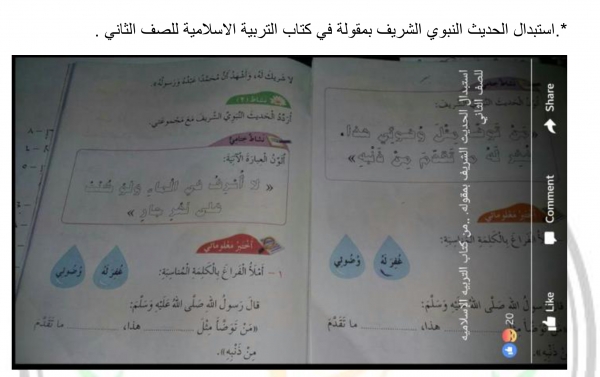 *.استبدال الحديث النبوي الشريف بمقولة في كتاب التربية الاسلامية للصف الثاني .
لا شريك له، وأشهد أنّ محمّداً عبده ورسوله».
نشاط (٢)
أردّد الحديث النبوي الشريف مع مجموعتي.
نشاط ختامي
ألوّن العبارة الآتية:
« لا أسرف في الماء ولو كنت
على نهر جار »
أختبر معلوماتي
غفر له
وضوئي
١ - أملأ الفراغ بالكلمة المناسبة:
قال رسول الله صلّى الله عليه وسلّم:
«من توضّأ مثل ـــــــ هذا، ـــــــ ما تقدّم
من ذنبه».
توضأ مثل وضوئي هذا،
غفر له ما تقدم من ذنبه »
أختبر معلوماتي
الفراغ بالكلمة المناسبة:
غفر له
وضوئي
رسول الله صلّى الله عليه وسلّم:
هذا، ـــــــ ما تقدّم
ذنبه».
استبدال الحديث الشريف بمقوله. ..من كتاب التربيه الاسلاميه
للصف الثاني
20
Like
Comment
Share